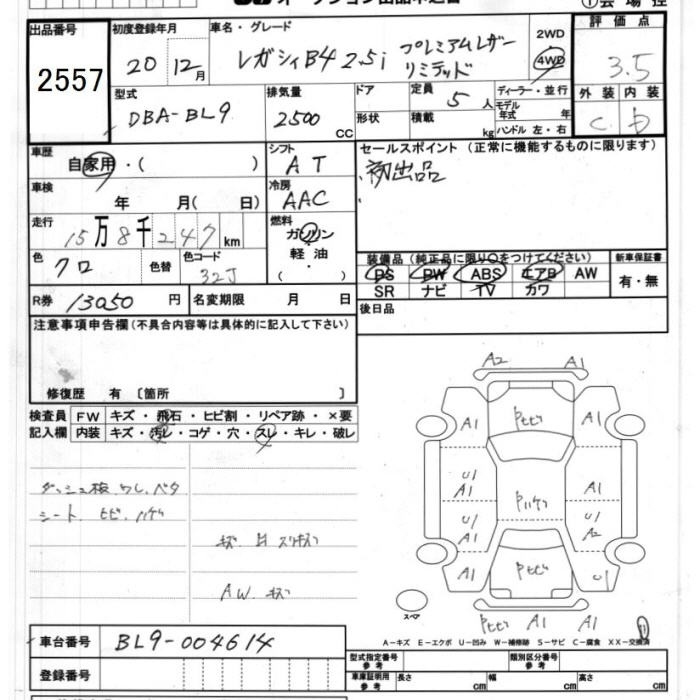 出品番号 初度登録年月 車名・グレード 2WD 評価点
2557 20 12月 レガシィB4 2.5i プレミアムレザーリミテッド 4WD 3.5
型式 排気量 ドア 定員 5人 ディーラー・並行 外装 内装
DBA-BL9 2500 CC 形状 積載 kg モデル年式 年 ハンドル 左・右 C
車歴 シフト セールスポイント (正常に機能するものに限ります)
自家用・( ) AT 初出品
車検 年 月( 日) 冷房 AAC
走行 15万8千247km 燃料 ガソリン
軽油
色 クロ 色替 色コード 32J
装備品 (純正品に限り○をつけてください) 新車保証書
PS PW ABS エアB AW 有・無
SR ナビ TV カワ
R券 13050円 名変期限 月 日 後日品
注意事項申告欄(不具合内容等は具体的に記入して下さい)
修復歴 有 〔箇所 〕
検査員 FW キズ・飛石・ヒビ割・リペア跡・×要
記入欄 内装 キズ・汚レ・コゲ・穴・スレ・キレ・破レ
ダッシュ板 ワレ.ベタ
シート ヒビ.ハゲ
キズ
AW.キズ
A2 A1
A1 Pヒビ A1
U1 A1 Pハゲ A1
U1 A1 U1 A2
A1 Pヒビ U1
スペア A1 A1
A-キズ E-エクボ U-凹み W-補修跡 S-サビ C-腐食 XX-交換済
車台番号 BL9-004614
登録番号
型式指定番号 参考 類別区分番号 参考
車庫証明用 参考 長さ cm 幅 cm 高さ cm